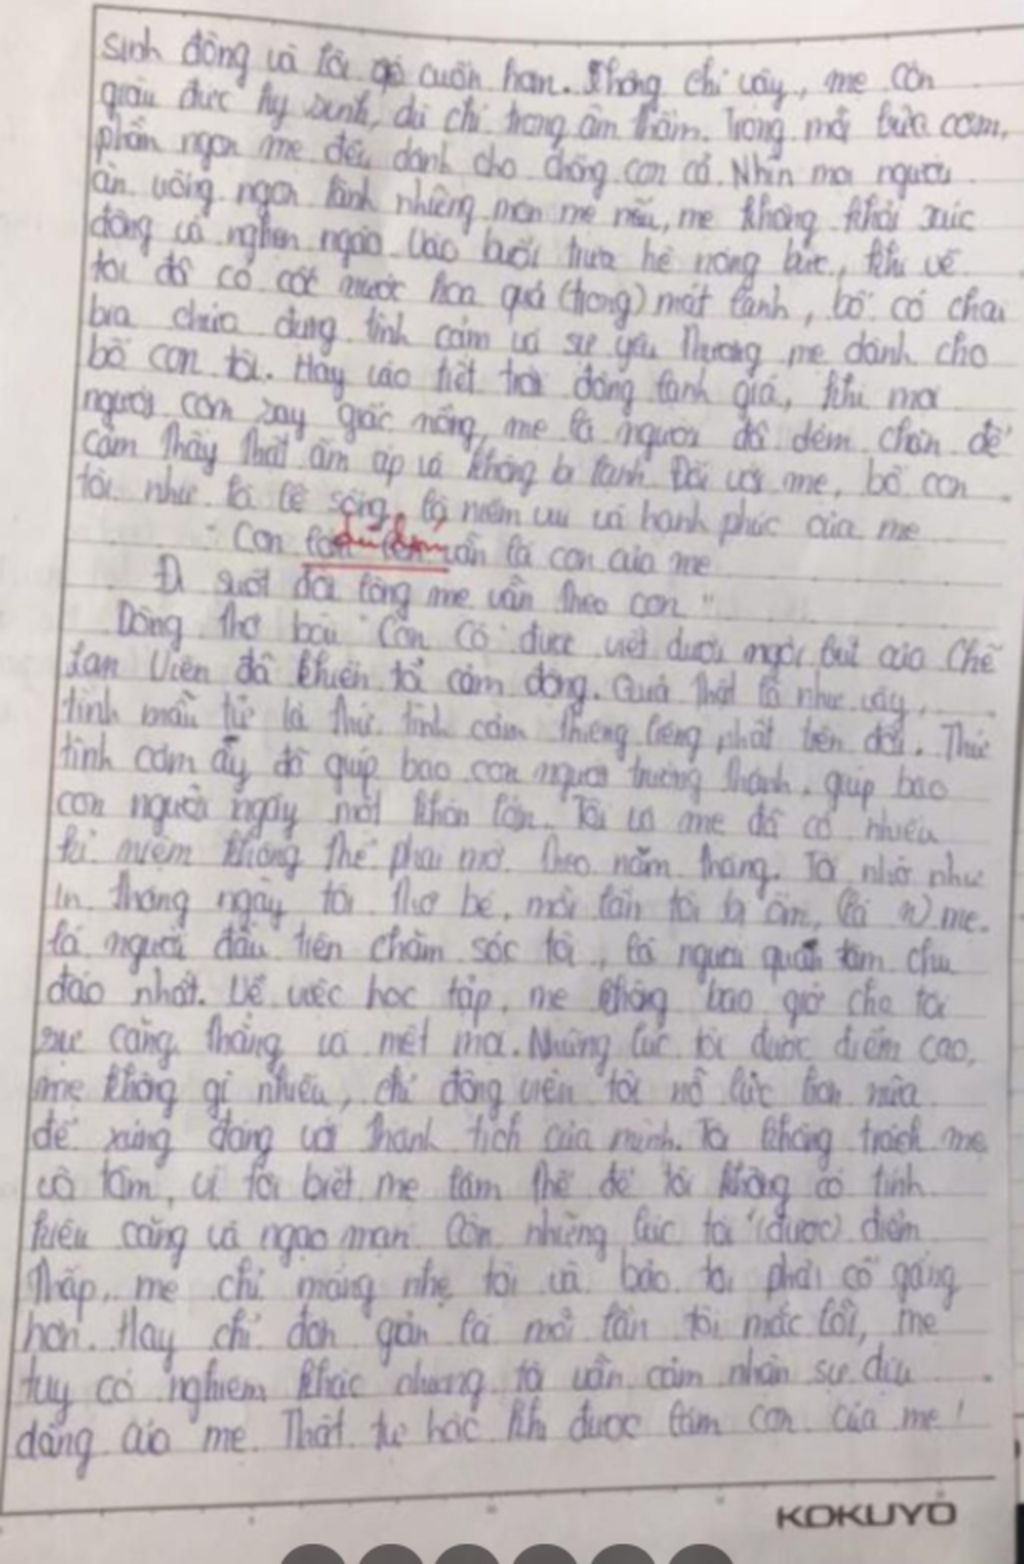 sinh động và lôi cuốn hơn. Không chỉ vậy, mẹ còn
giàu đức hy sinh, dù chỉ trong âm thầm. Trong mỗi bữa cơm,
phần ngon mẹ đều dành cho chồng con cả. Nhìn mọi người
ăn uống ngon lành những món mẹ nấu, mẹ không khỏi xúc
động và nghẹn ngào. Vào buổi trưa hè nóng bức, khi về
tôi đã có cốt nước hoa quả (trong) mát lành, bố có chai
bia chứa đựng tình cảm và sự yêu thương mẹ dành cho
bố con tôi. Hay vào tiết trời đông lạnh giá, khi mọi
người còn say giấc nồng, mẹ là người đã đém chăn để
cảm thấy thật ấm áp và không bị lạnh. Đối với mẹ, bố con
tôi như là lẽ sống, là niềm vui và hạnh phúc của mẹ
"Con dù lớn vẫn là con của mẹ
Đi suốt đời lòng mẹ vẫn theo con"
Dòng thơ bài "Con Cò" được viết dưới ngòi bút của Chế
Lan Viên đã khiến tôi cảm động. Quả thật là như vậy,
tình mẫu tử là thứ tình cảm thiêng liêng nhất trên đời. Thứ
tình cảm ấy đã giúp bao con người trưởng thành, giúp bao
con người ngày một khôn lớn. Tôi và mẹ đã có nhiều
kỉ niệm không thể phai mờ theo năm tháng. Tôi nhớ như
in tháng ngày tôi thơ bé, mỗi lần tôi bị ốm, (là n) mẹ
là người đầu tiên chăm sóc tôi, là người quan tâm chu
đáo nhất. Về việc học tập, mẹ không bao giờ cho tôi
sự căng thẳng và mệt mỏi. Những lúc tôi được điểm cao,
mẹ không gì nhiều, chỉ động viên tôi nỗ lực hơn nữa
để xứng đáng với thành tích của mình. Tôi không trách mẹ
vô tâm, vì tôi biết mẹ làm thế để tôi không có tính
kiêu căng và ngạo mạn. Còn những lúc tôi (được) điểm
thấp, mẹ chỉ mắng nhẹ tôi và bảo tôi phải cố gắng
hơn. Hay chỉ đơn giản là mỗi lần tôi mắc lỗi, mẹ
tuy có nghiêm khắc nhưng tôi vẫn cảm nhận sự dịu
dàng của mẹ. Thật tự hào khi được làm con của mẹ!
KOKUYO